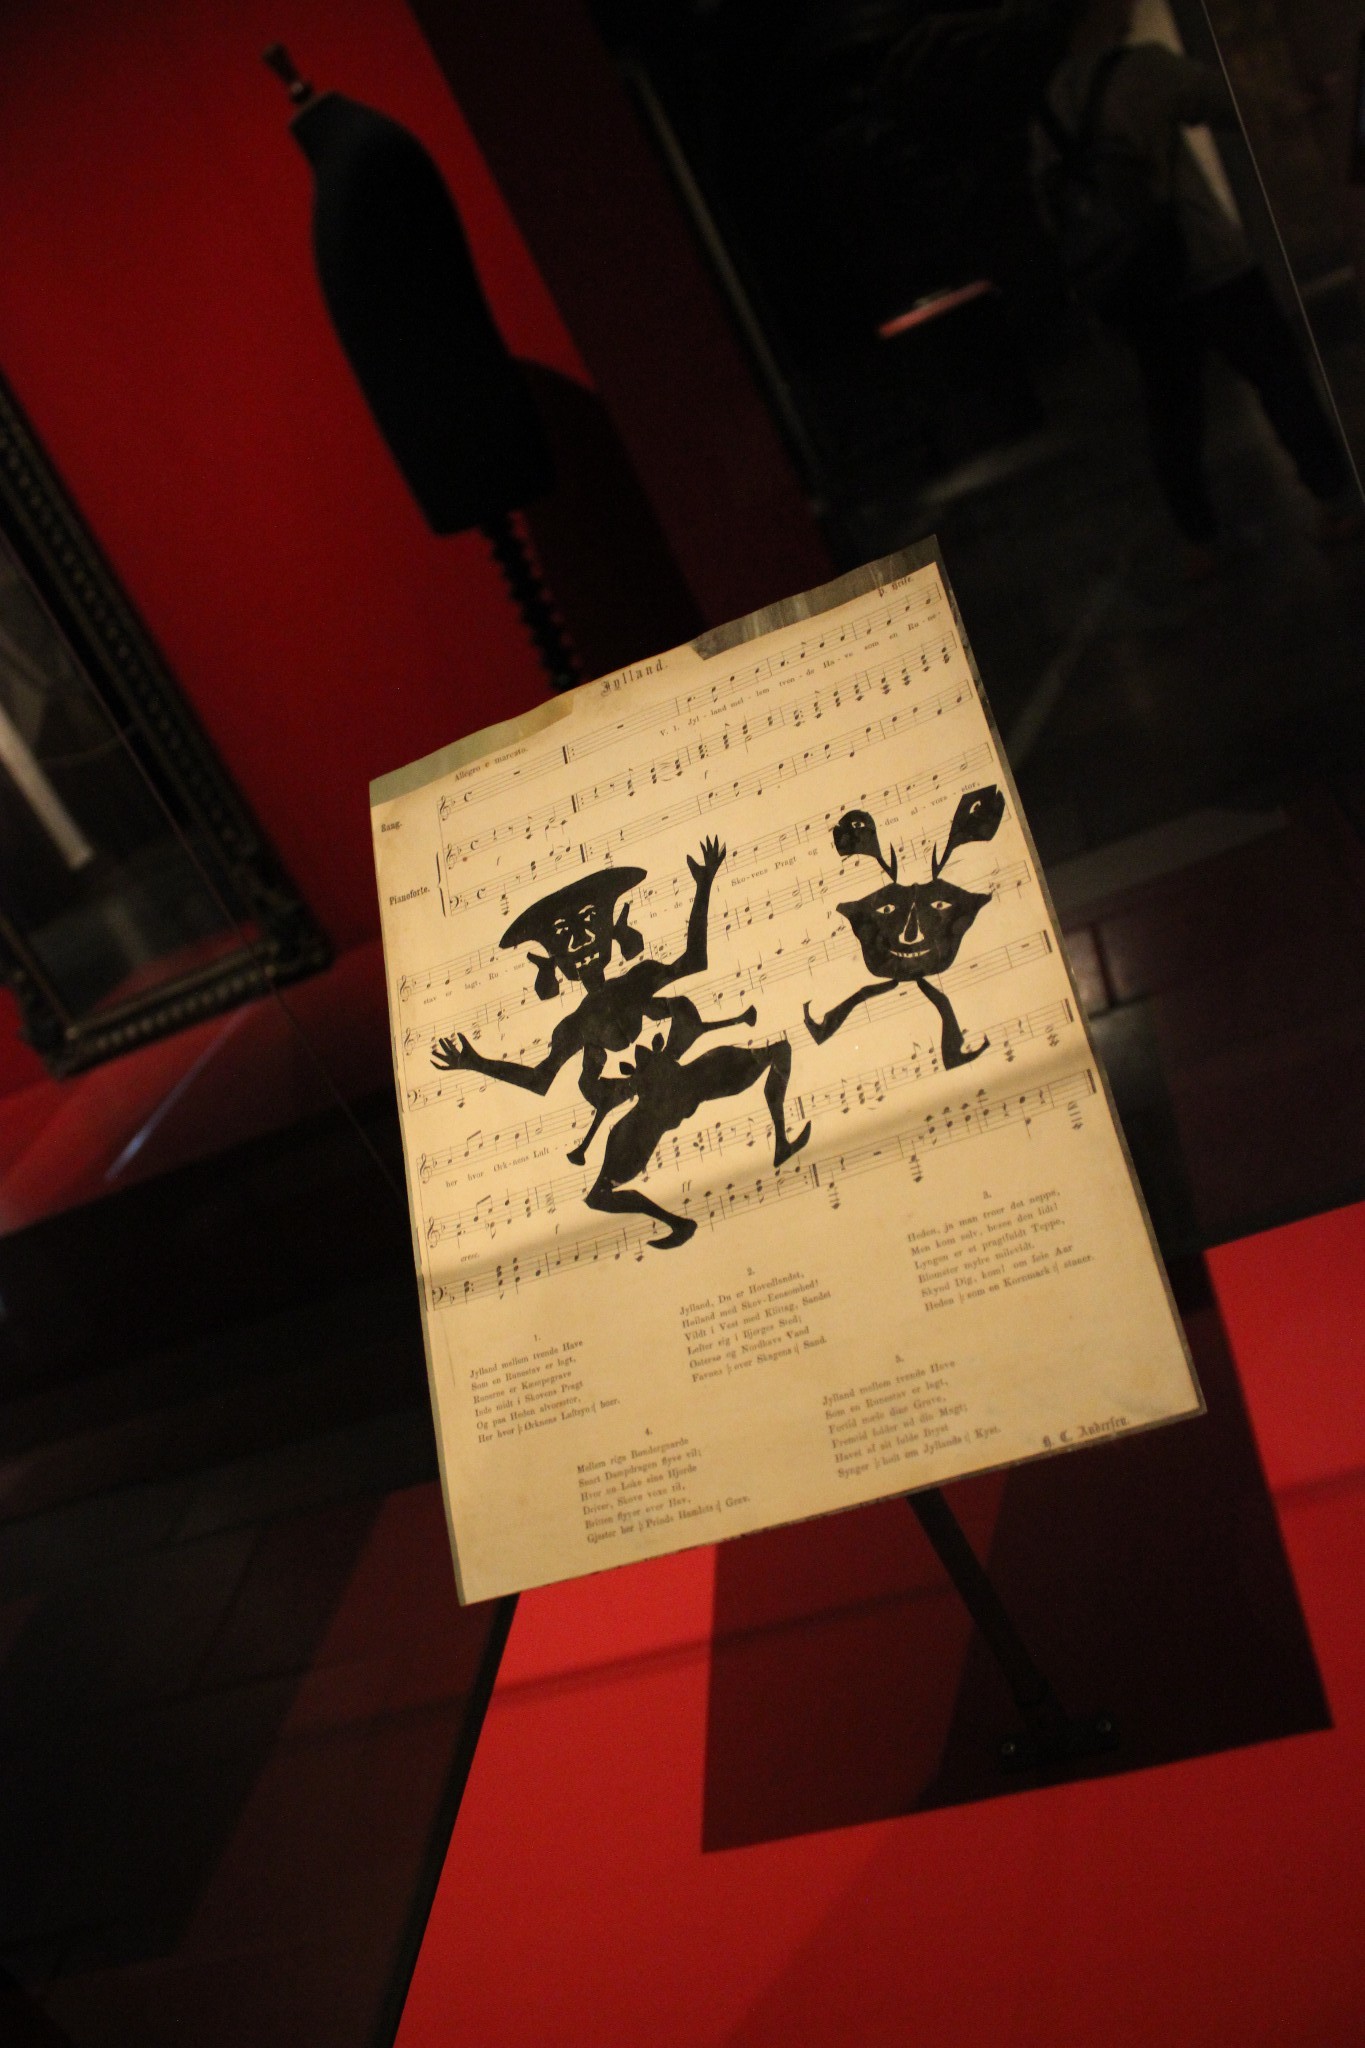 Jylland.
P. Heise.
Allegro e marcato.
Sang.
V. 1. Jyl - land mel - lem tven - de Hav som en Ru - ne-
Pianoforte.
f
f
stav er lagt, Ru - ner
inde i Sko - vens Pragt og
den al - vors - stor,
p
her hvor Ørk - nens Luft - syn
f
ff
cresc.
1.
Jylland mellem tvende Have
Som en Runestav er lagt,
Runerne er Kæmpegrave
Inde midt i Skovens Pragt
Og paa Heden alvorsstor,
Her hvor |: Ørknens Luftsyn :| boer.
2.
Jylland, Du er Hovedlandet,
Høiland med Skov-Eensomhed!
Vildt i Vest med Klittag, Sandet
Løfter sig i Bjerges Sted;
Østersø og Nordhavs Vand
Favnes |: over Skagens :| Sand.
3.
Heden, ja man troer det neppe,
Men kom selv, besee den lidt!
Lyngen er et pragtfuldt Teppe,
Blomster myldre milevidt.
Skynd Dig, kom! om føie Aar
Heden |: som en Kornmark :| staaer.
4.
Mellem rige Bøndergaarde
Snart Dampdragen flyve vil;
Hvor nu Loke sine Hjorde
Driver, Skove voxe til,
Britten flyver over Hav,
Gjæster her |: Prinds Hamlets :| Grav.
5.
Jylland mellem tvende Have
Som en Runestav er lagt,
Fortid mæle dine Grave,
Fremtid folder ud din Magt;
Havet af sit fulde Bryst
Synger |: høit om Jyllands :| Kyst.
H. C. Andersen.